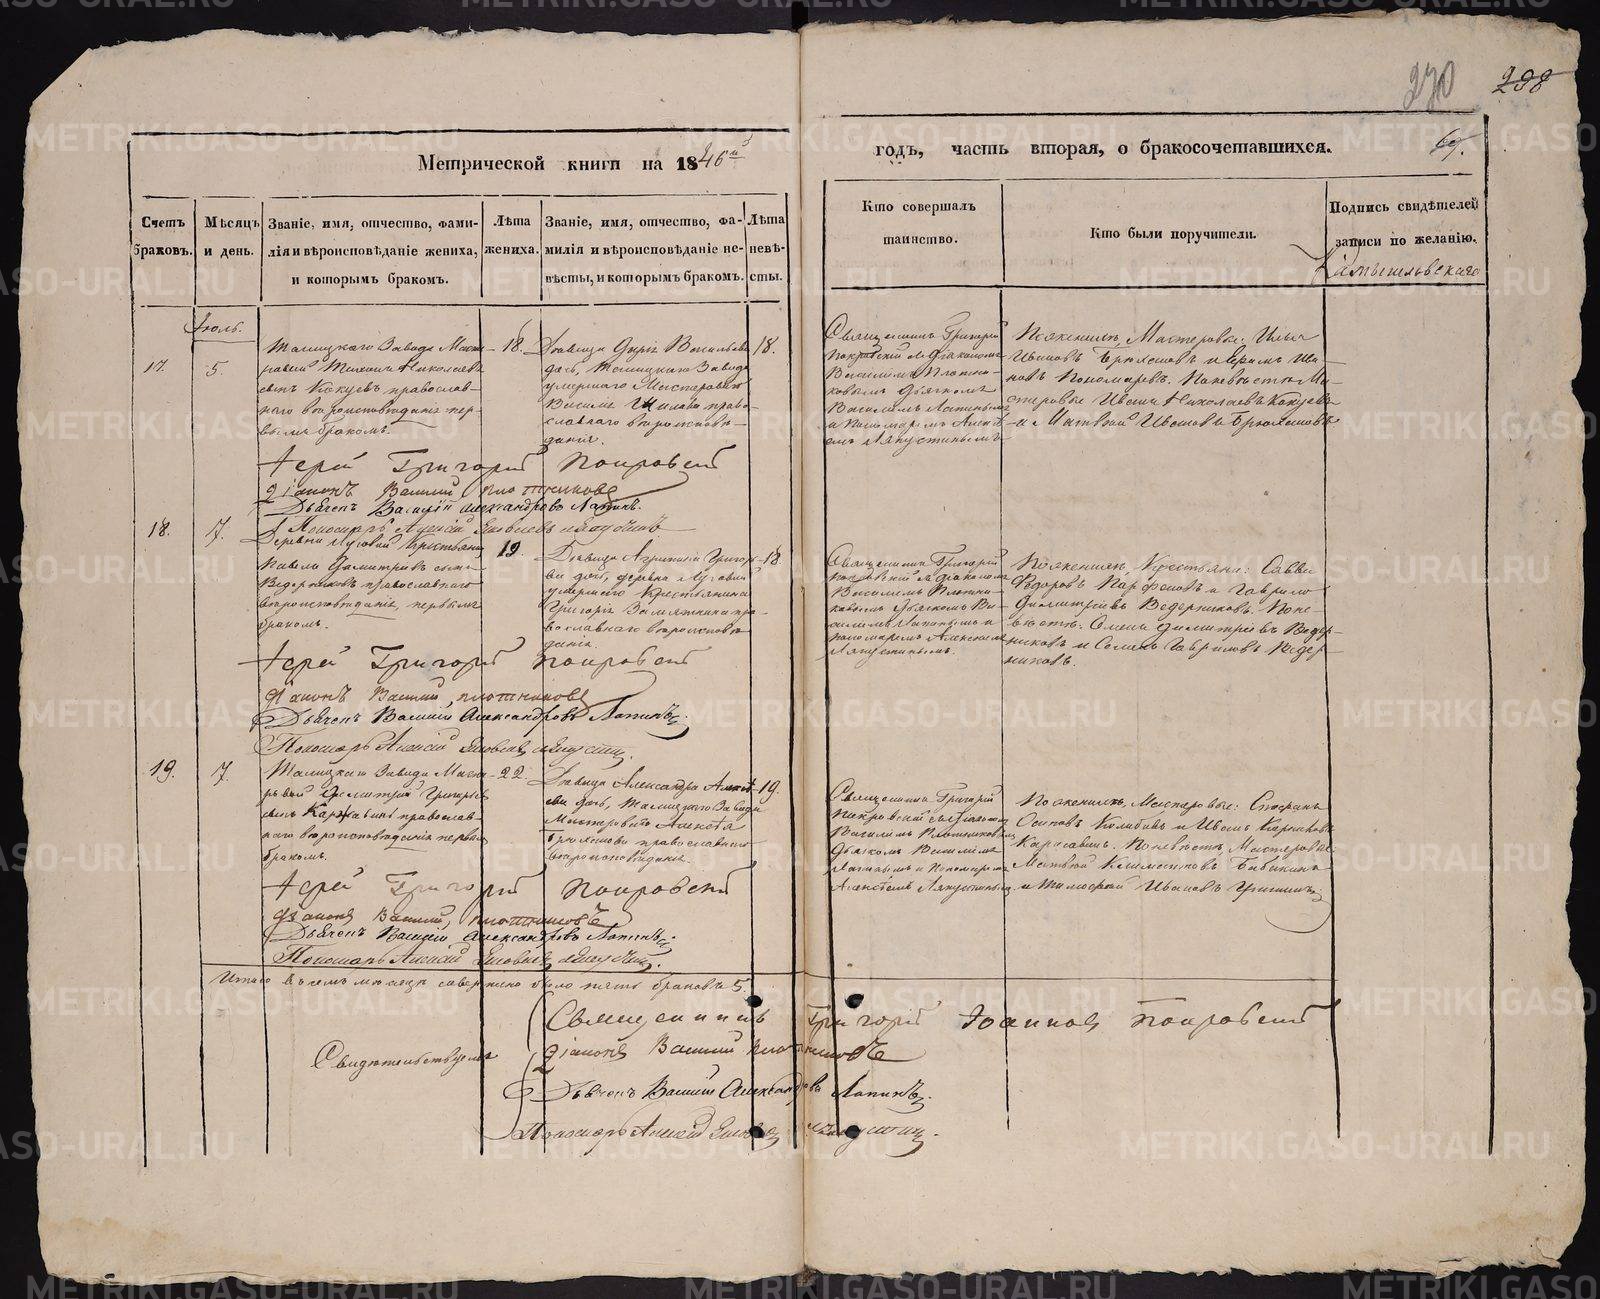 270 298
Метрической книги на 1846й
годъ, часть вторая, о бракосочетавшихся.
69.
Счетъ
браковъ.
Мѣсяцъ
и день.
Званіе, имя, отчество, фами-
лія и вѣроисповѣданіе жениха,
и которымъ бракомъ.
Лѣта
жениха.
Званіе, имя, отчество, фа-
милія и вѣроисповѣданіе не-
вѣсты, и которымъ бракомъ.
Лѣта
невѣ-
сты.
Кто совершалъ
таинство.
Кто были поручители.
Подпись свидѣтелей
записи по желанію.
Камышловскаго
Іюль.
17.
5.
Талицкаго Завода Масте-
ровой Николаевъ
сынъ Кокуевъ православ-
наго вѣроисповѣданія пер-
вымъ бракомъ.
18.
Дѣвица Васильева
дочь, Талицкаго Завода
умершаго Мастероваго
Василія Шилова право-
славнаго вѣроисповѣ-
данія.
18.
Священникъ Григорій
Покровскій съ Діакономъ
Василіемъ Плотни-
ковымъ Дьячкомъ
Василіемъ Лапинымъ
и Пономаремъ Алексѣ-
емъ Ляпустинымъ
По женихѣ, Мастеровые: Илья
Ивановъ Брюхановъ и Ива-
новъ Пономаревъ. По невѣстѣ Ма-
стеровые Иванъ Николаевъ Кокуевъ
и Матвѣй Ивановъ Брюхановъ
Іерей Григорій Покровскій
Діаконъ Василій Плотниковъ
Дьячекъ Василій Александровъ Лапинъ.
Пономарь Алексій Яковлевъ
18.
7.
Деревни Луговой Крестьянинъ
Павелъ Димитріевъ сынъ
Ведерниковъ православнаго
вѣроисповѣданія, первымъ
бракомъ.
19.
Дѣвица Агриппина Григорь-
ева дочь, деревни Луговой
умершаго Крестьянина
Григорія пра-
вославнаго вѣроисповѣ-
данія.
18
Священникъ Григорій
Покровскій съ Діакономъ
Василіемъ Плотни-
ковымъ Дьячкомъ Ва-
силіемъ Лапинымъ и
пономаремъ Алексѣемъ
Ляпустинымъ.
По женихѣ, Крестьяне: Савва
Ѳедоровъ Парфеновъ и Гаврило
Димитріевъ Ведерниковъ. По не-
вѣстѣ: Семенъ Димитріевъ Ведер-
никовъ и Семенъ Гавриловъ Ведер-
никовъ.
Іерей Григорій Покровскій
Діаконъ Василій Плотниковъ
Дьячекъ Василій Александровъ Лапинъ.
Пономарь Алексій Яковлевъ Ляпустинъ.
19.
7.
Талицкаго Завода Масте-
ровой Димитрій Григорьевъ
сынъ православ-
наго вѣроисповѣданія первымъ
бракомъ.
22.
Дѣвица Александра Алексѣ-
ева дочь, Талицкаго Завода
Мастероваго Алексѣя
Брюханова православнаго
вѣроисповѣданія.
19.
Священникъ Григорій
Покровскій съ Діакономъ
Василіемъ Плотниковымъ
Дьячкомъ Василіемъ
Лапинымъ и Пономаремъ
Алексѣемъ Ляпустинымъ
По женихѣ, Мастеровые: Степанъ
Осиповъ и Иванъ
По невѣстѣ Мастеровые
Матвѣй Климентовъ Бабкинъ
и Тимофей Ивановъ
Іерей Григорій Покровскій
Діаконъ Василій Плотниковъ
Дьячекъ Василій Александровъ Лапинъ.
Пономарь Алексій Яковлевъ Ляпустинъ.
Итого въ семъ мѣсяцѣ совершено было пять браковъ 5.
Свидѣтельствуемъ
Священникъ Григорій Іоанновъ Покровскій
Діаконъ Василій Плотниковъ
Дьячекъ Василій Александровъ Лапинъ.
Пономарь Алексій Яковлевъ Ляпустинъ.